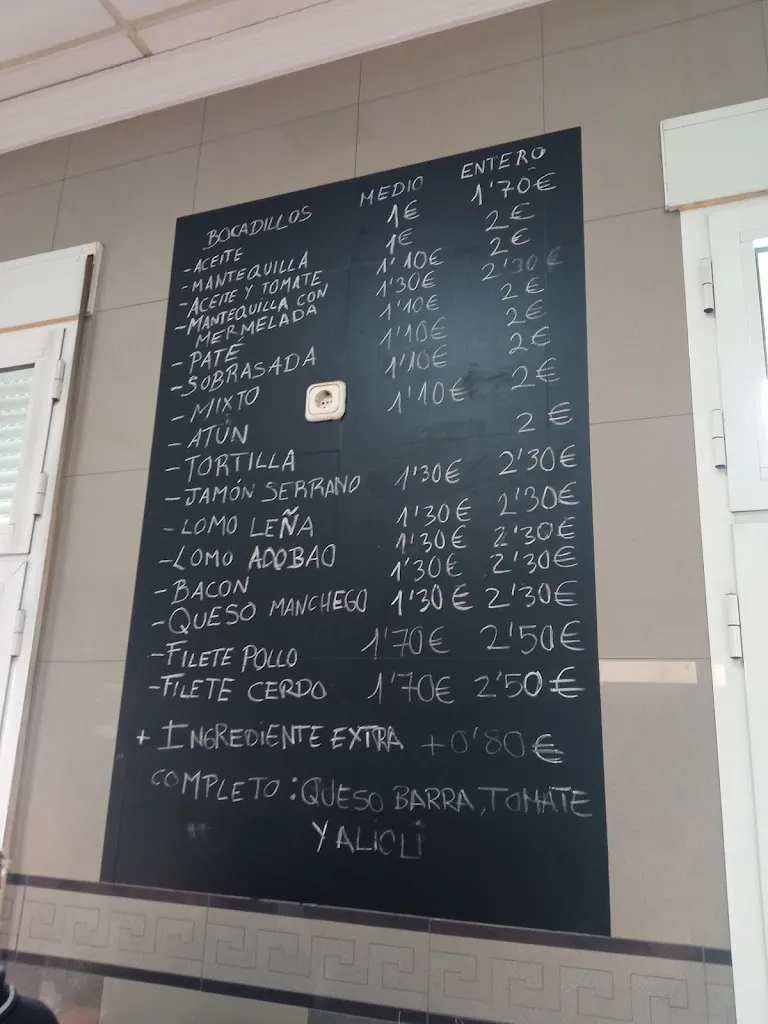 BOCADILLOS MEDIO ENTERO
-ACEITE 1€ 1'70€
-MANTEQUILLA 1€ 2€
-ACEITE Y TOMATE 1'10€ 2€
-MANTEQUILLA CON 1'30€ 2'30€
MERMELADA
-PATÉ 1'10€ 2€
-SOBRASADA 1'10€ 2€
-MIXTO 1'10€ 2€
-ATÚN 1'10€ 2€
-TORTILLA 2€
-JAMÓN SERRANO 1'30€ 2'30€
-LOMO LEÑA 1'30€ 2'30€
-LOMO ADOBAO 1'30€ 2'30€
-BACON 1'30€ 2'30€
-QUESO MANCHEGO 1'30€ 2'30€
-FILETE POLLO 1'70€ 2'50€
-FILETE CERDO 1'70€ 2'50€
+ INGREDIENTE EXTRA +0'80€
COMPLETO: QUESO BARRA, TOMATE
Y ALIOLI